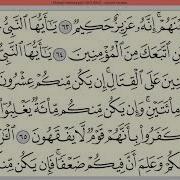 إِنَّهُۥ عَزِيزٌ حَكِيمٌ ٦٣ يَٰٓأَيُّهَا ٱلنَّبِىُّ
ٱتَّبَعَكَ مِنَ ٱلْمُؤْمِنِينَ ٦٤ يَٰٓأَيُّهَا ٱلنَّبِىُّ
عَلَى ٱلْقِتَالِ إِن يَكُن مِّنكُمْ عِشْرُونَ
مِا۟ئَتَيْنِ وَإِن يَكُن مِّنكُم مِّا۟ئَةٌ يَغْلِبُوٓا۟
كَفَرُوا۟ بِأَنَّهُمْ قَوْمٌ لَّا يَفْقَهُونَ ٦٥
وَعَلِمَ أَنَّ فِيكُمْ ضَعْفًا فَإِن يَكُن مِّنكُم